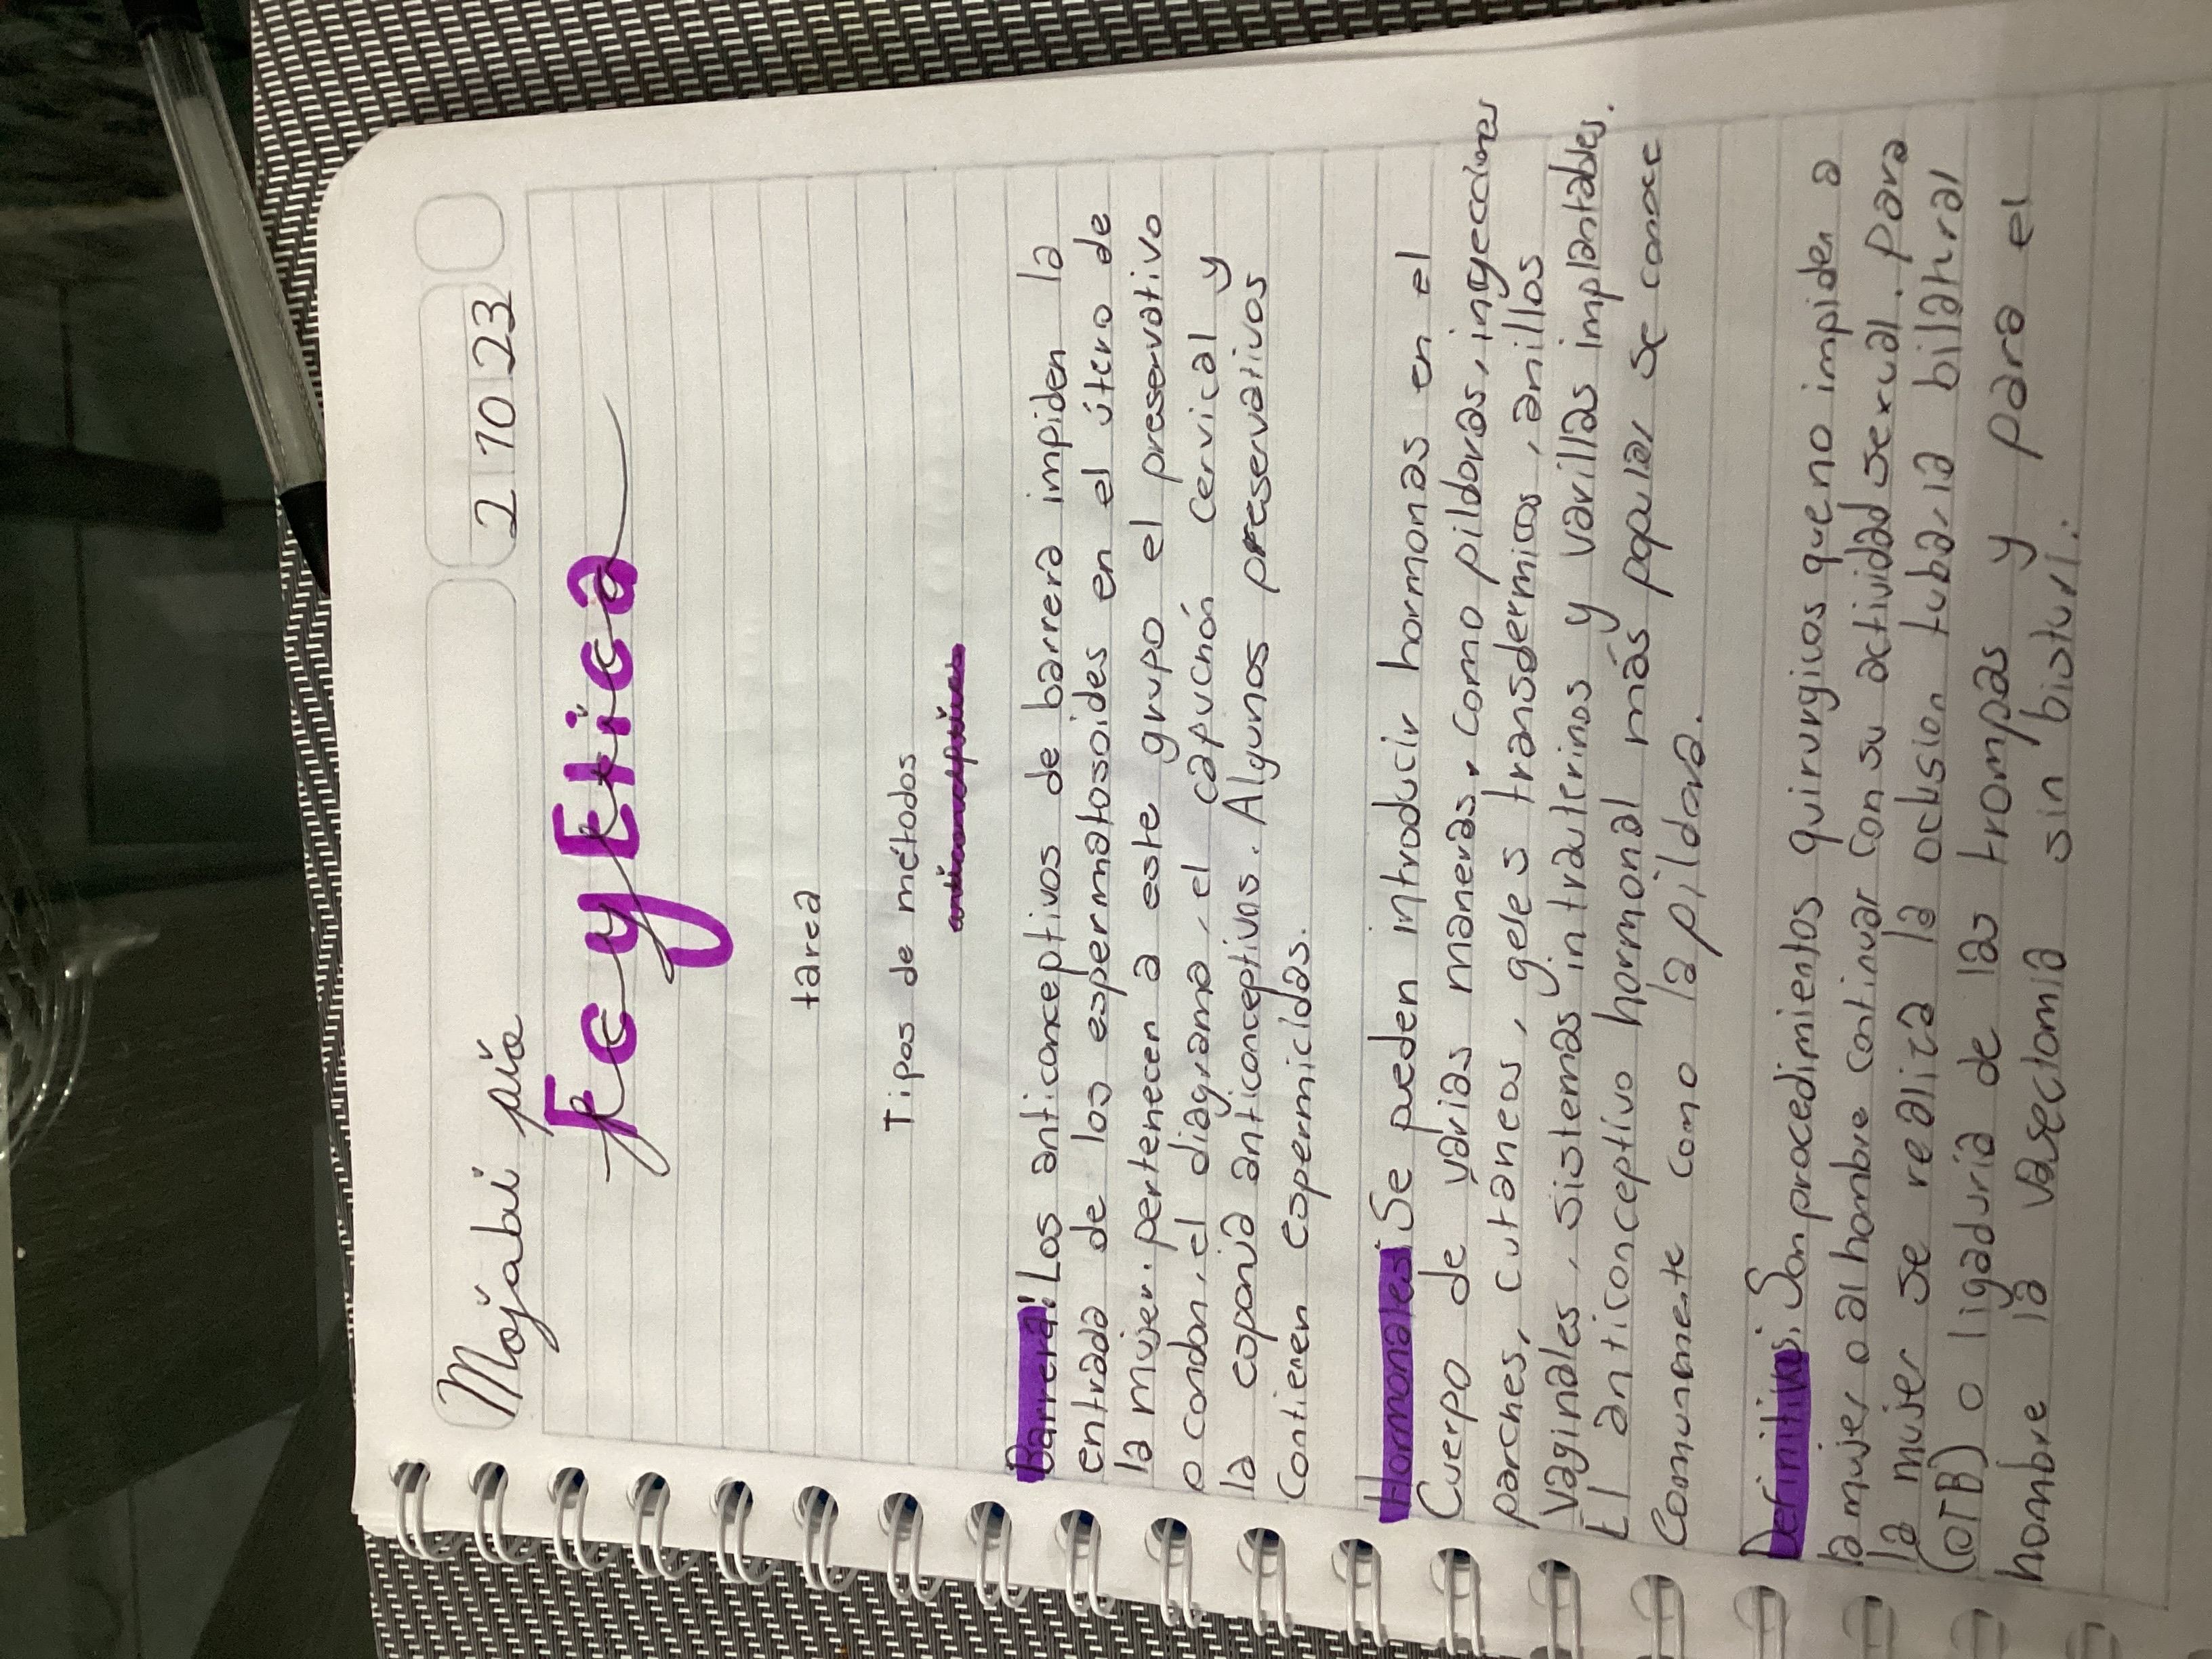 Mojabui pía
2 10 23
FcyEtica
tarea
Tipos de métodos
anticonceptivos
Barrera: Los anticonceptivos de barrera impiden la
entrada de los espermatosoides en el útero de
la mujer. pertenecen a este grupo el preservativo
o condon, el diagrama, el capuchón cervical y
la esponja anticonceptivas. Algunos preservativos
contienen espermicidas.
Hormonales: Se pueden introducir hormonas en el
Cuerpo de varias maneras. Como pildoras, inyecciones
parches, cutáneos, geles transdermicos, anillos
vaginales, sistemas intrauterinos y varillas implantables.
El anticonceptivo hormonal más popular se conoce
Comunmente como la pildora.
Definitivos: Son procedimientos quirurgicos que no impiden a
la mujer o al hombre continuar con su actividad sexual. Para
la mujer se realiza la oclusion tubaria bilateral
(OTB) o ligaduria de las trompas y para el
hombre la vasectomia sin bisturi.